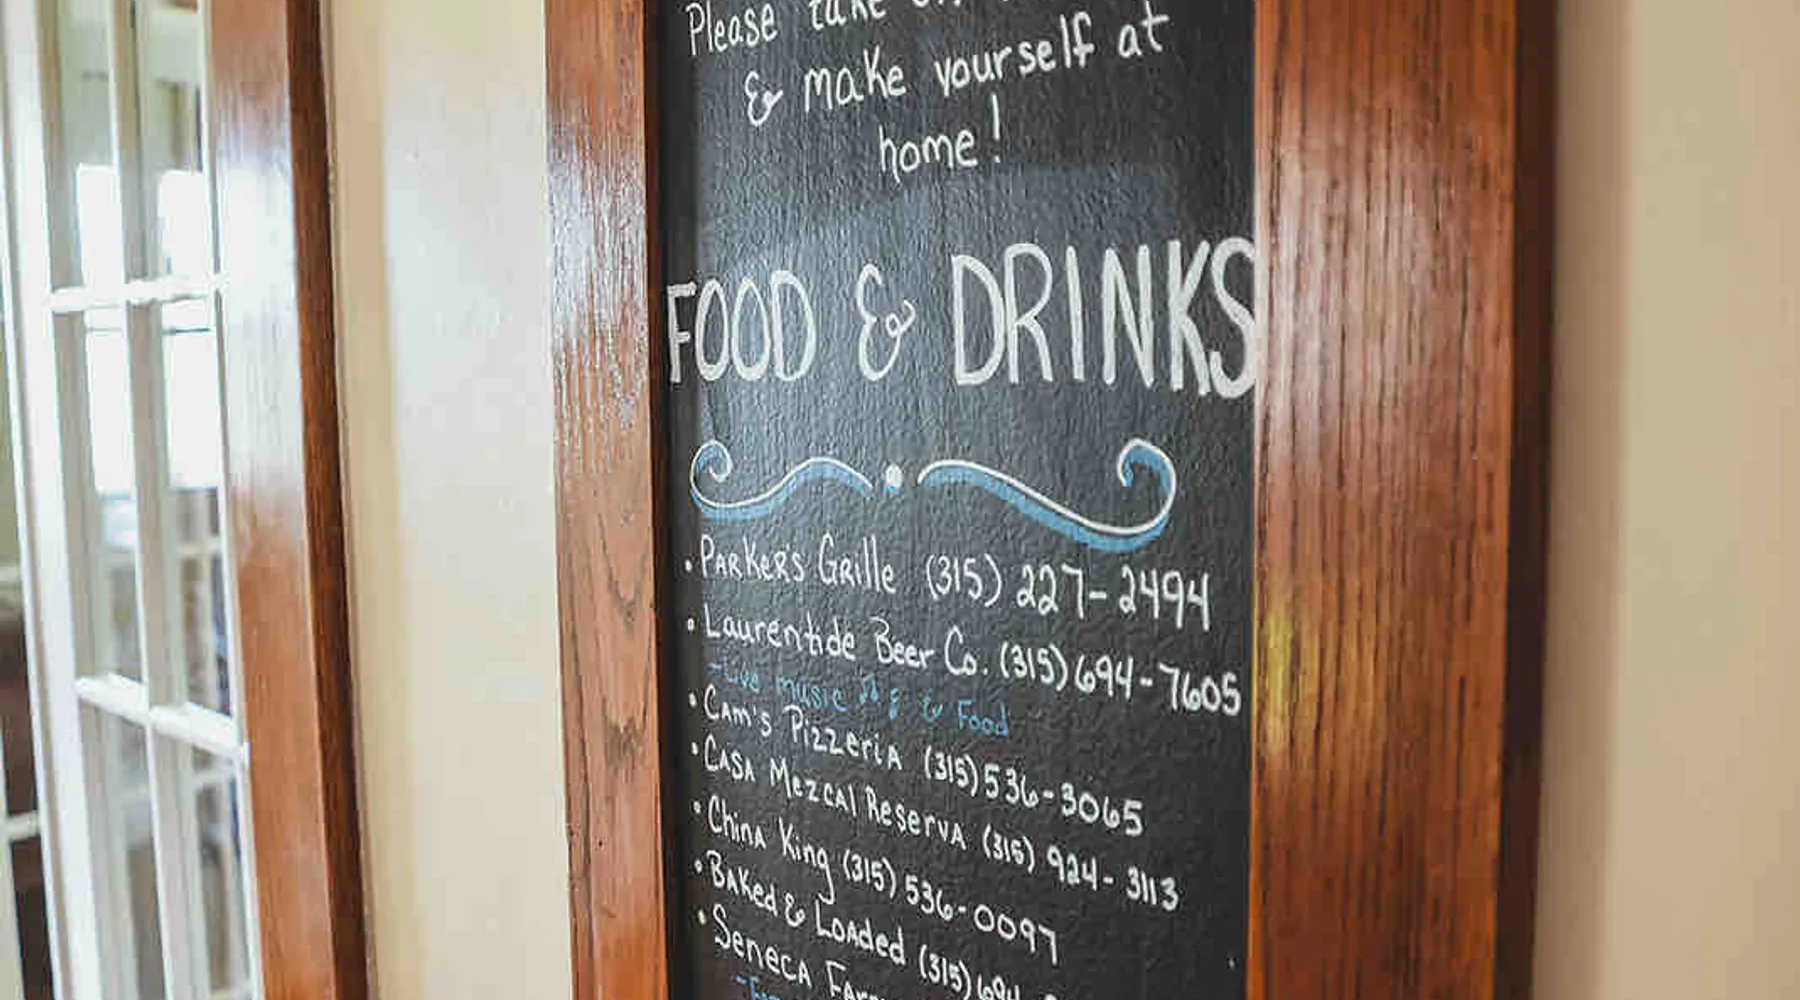 Please take
& make yourself at
home!
FOOD & DRINKS
• Parker's Grille (315) 227-2494
• Laurentide Beer Co. (315) 694-7605
- Live music & Food
• Cam's Pizzeria (315) 536-3065
• Casa Mezcal Reserva (315) 924-3113
• China King (315) 536-0097
• Baked & Loaded (315) 694-
• Seneca